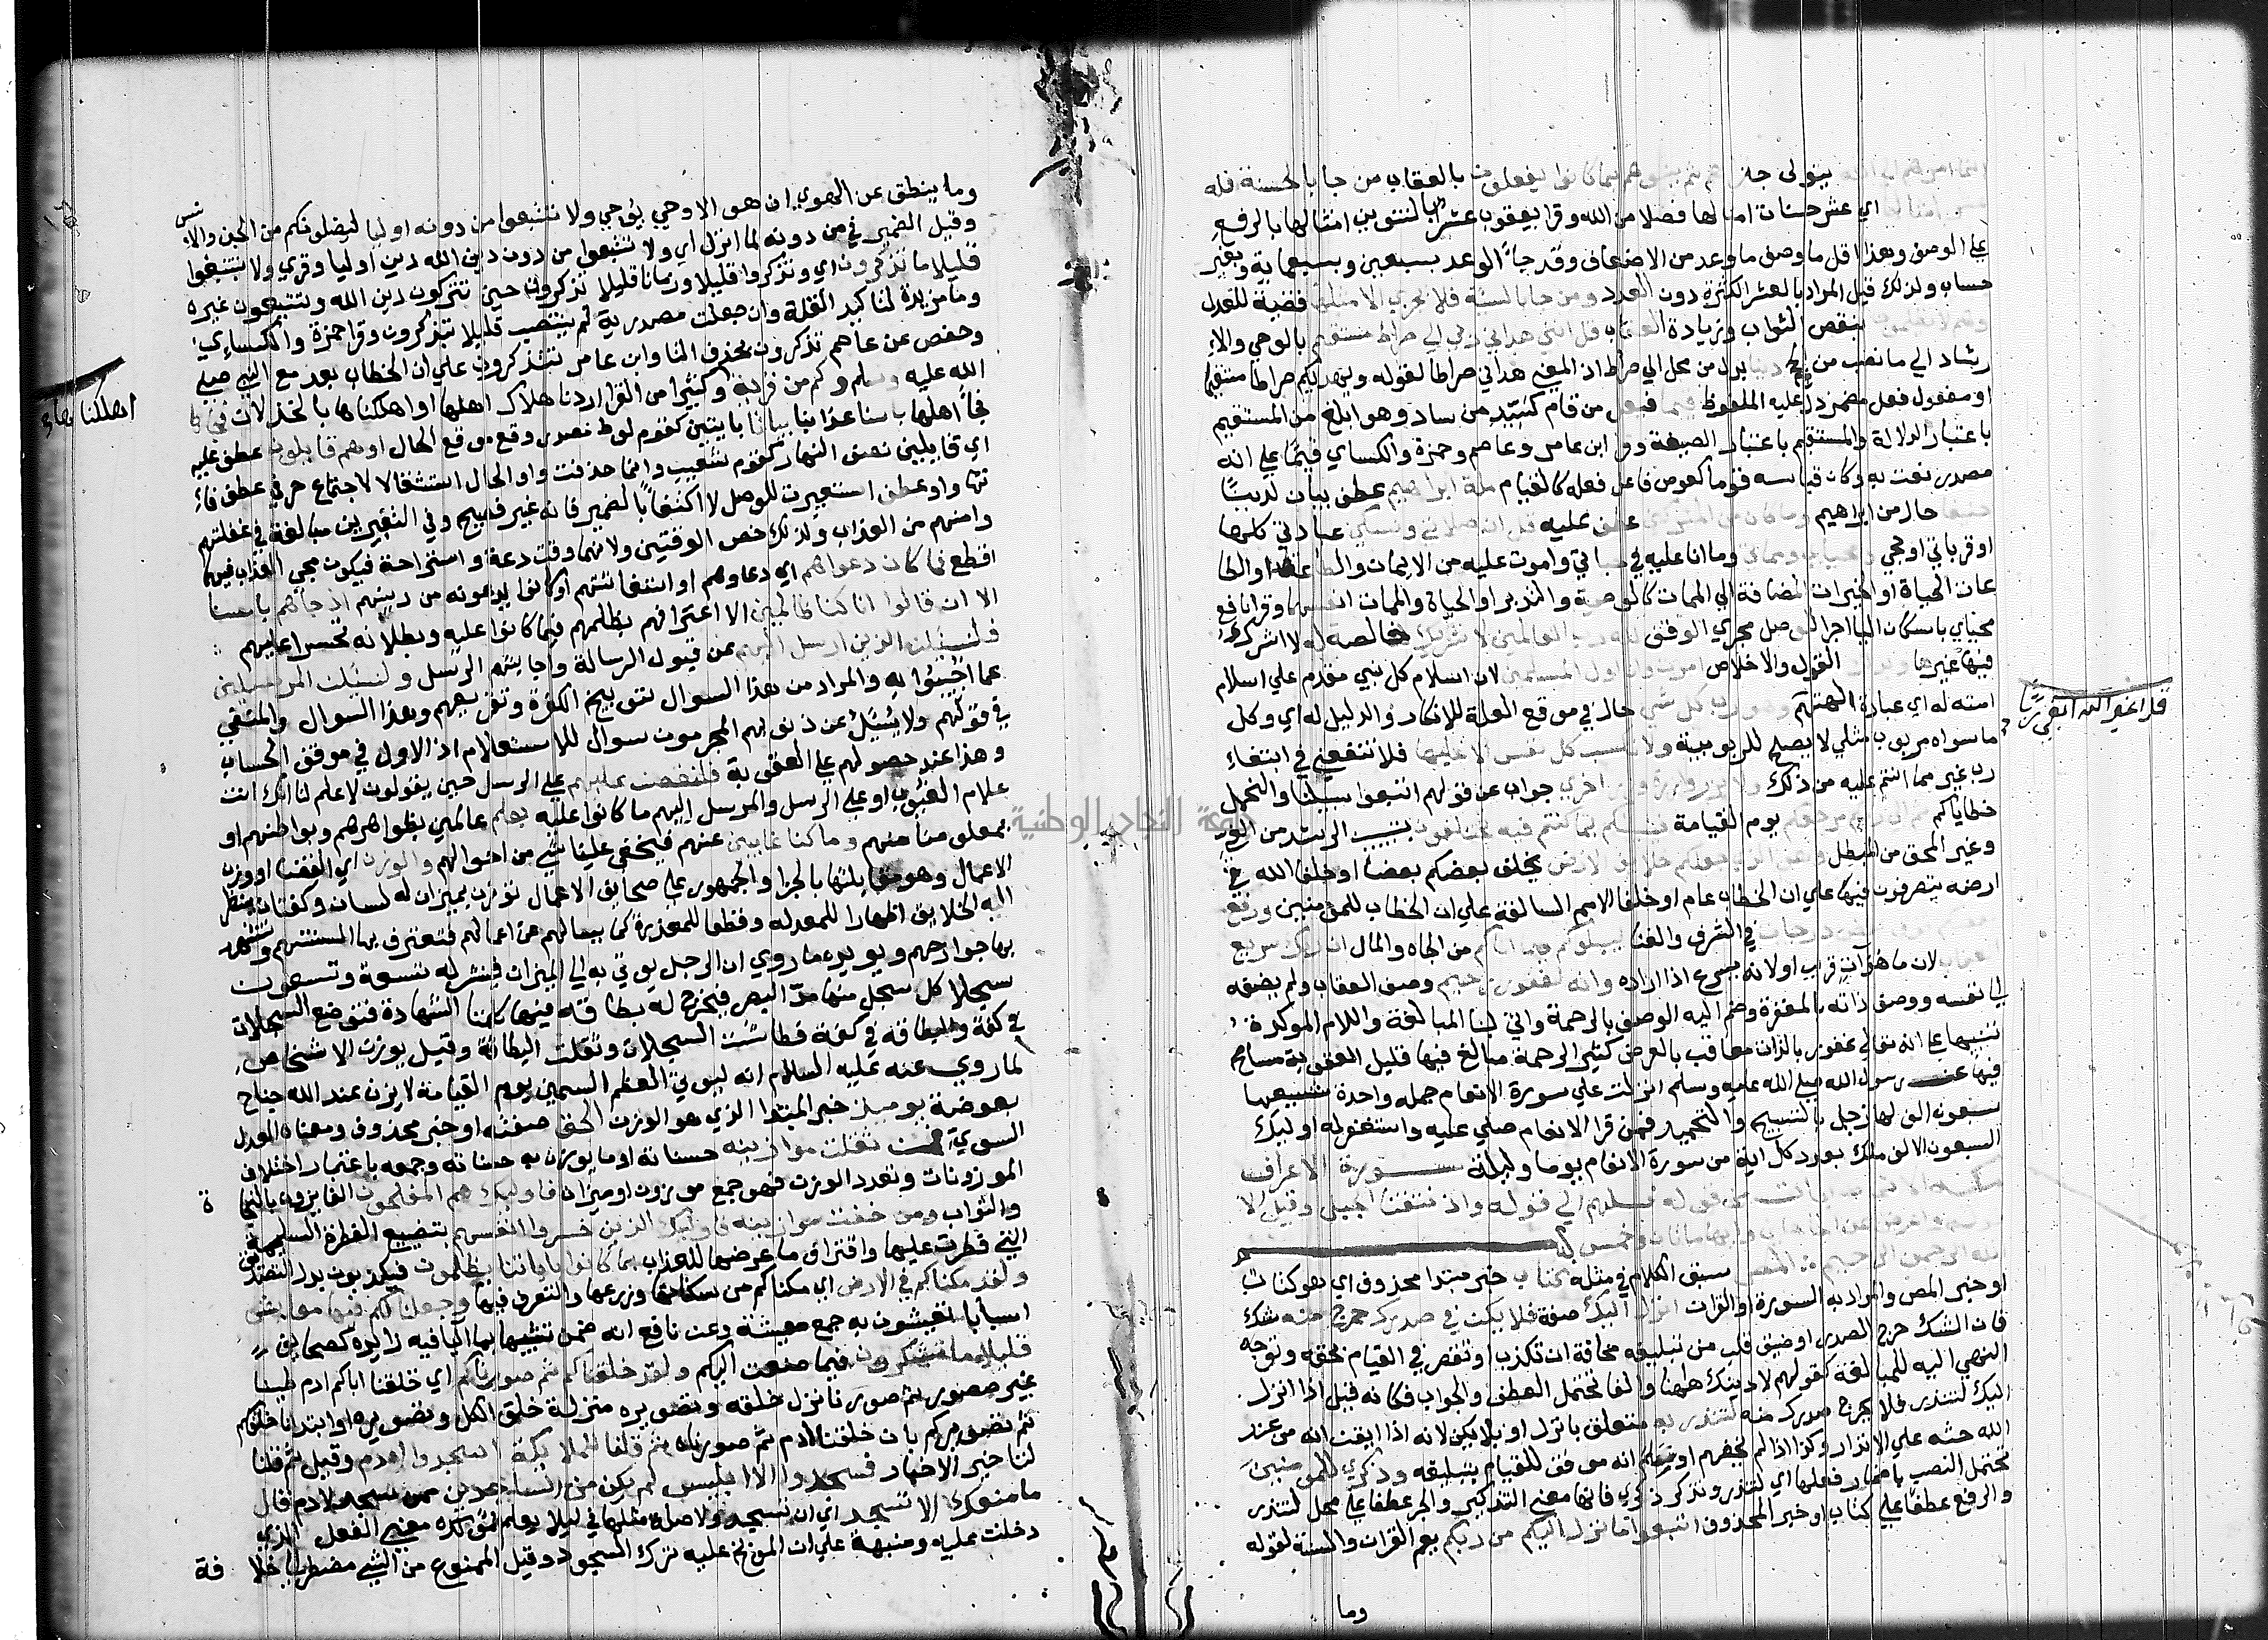 انما امرهم الي الله يتولى جزاهم ثم ينبئهم بما كانوا يفعلون بالعقاب من جا بالحسنة فله
عشر امثالها اي عشر حسنات امثالها فضلا من الله وقرا يعقوب عشر بالتنوين امثالها بالرفع
علي الوصف وهذا اقل ما وعد من الاضعاف وقد جاء الوعد بسبعين وبسبعماية وبغير
حساب ولذلك قيل المراد بالعشر الكثرة دون العدد ومن جا بالسيئة فلا يجزي الا مثلها قضية للعدل
وهم لا يظلمون بنقص الثواب وزيادة العقاب قل انني هداني ربي الي صراط مستقيم بالوحي والا
رشاد الي ما نصب من الحجج دينا بدل من محل الي صراط اذ المعني هداني صراطا لقوله ويهديكم صراطا مستقيما
او مفعول فعل مضمر دل عليه الملفوظ قيما فيعل من قام كسيد من ساد وهو ابلغ من المستقيم
باعتبار الدلالة والمستقيم باعتبار الصيغة وقرا ابن عامر وعاصم وحمزة والكساي قيما علي انه
مصدر نعت به وكان قياسه قوما كعوض فاعل فعله كالقيام ملة ابراهيم عطف بيان لدينا
حنيفا حال من ابراهيم وما كان من المشركين عطف عليه قل ان صلاتي ونسكي عبادتي كلها
او قرباني او حجي ومحياي ومماتي وما انا عليه في حياتي واموت عليه من الايمان والطاعة او الطا
عات الحياة او الخيرات المضافة الي الممات كالوصية والتدبير او الحياة والممات انفسهما وقرا نافع
محياي باسكان اليا اجرا للوصل مجري الوقف لله رب العالمين لا شريك له خالصة له لا اشرك
فيها غيره وبذلك القول والاخلاص امرت وانا اول المسلمين لان اسلام كل نبي مقدم علي اسلام
امته
قل اغير الله ابغي ربا
له اي عبادة الهتهم وهو رب كل شي حال في موقع العلة للانكار والدليل له اي وكل
ما سواه مربوب مثلي لا يصلح للربوبية ولا تكسب كل نفس الا عليها فلا تنفعني في ابتغاء
رب غير مما انتم عليه من ذلك ولا تزر وازرة وزر اخري جواب عن قولهم اتبعوا سبيلنا ولنحمل
خطاياكم ثم الي ربكم مرجعكم يوم القيامة فينبئكم بما كنتم فيه تختلفون بتبيين الرشد من الغي
وتميز المحق من المبطل وهو الذي جعلكم خلايف الارض يخلف بعضكم بعضا او خلفا الله في
ارضه يتصرفون فيها علي ان الخطاب عام او خلفا الامم السالفة علي ان الخطاب للمؤمنين ورفع
بعضكم فوق بعض درجات في الشرف والغنا ليبلوكم فيما اتاكم من الجاه والمال ان ربك سريع
العقاب لان ما هو آت قريب او لانه يسرع اذا اراده وانه لغفور رحيم وصف العقاب ولم يضفه
الي نفسه ووصف ذاته بالمغفرة وضم اليه الوصف بالرحمة واتي ببنا المبالغة واللام الموكدة
تنبيها علي انه تعالي غفور بالذات معاقب بالعرض كثير الرحمة مبالغ فيها قليل العقوبة مسامح
فيها عن رسول الله صلي الله عليه وسلم انزلت علي سورة الانعام جملة واحدة تشيعها
سبعون الف لهم زجل بالتسبيح والتحميد فمن قرا الانعام صلي عليه واستغفر له اوليك
السبعون الالف ملك بعدد كل اية من سورة الانعام يوما وليلة سورة الاعراف
مكية الا ثمان ايات من قوله وسلهم الي قوله واذ نتقنا الجبل وقيل الا
وايها مايتان وخمس اية
الله الرحمن الرحيم المص سبق الكلام في مثله كتاب خبر مبتدا محذوف اي هو كتاب
او خبر المص والمراد به السورة او القران انزل اليك صفة فلا يكن في صدرك حرج منه شك
فان الشك حرج الصدر او ضيق قلب من تبليغه مخافة ان تكذب او تقصر في القيام بحقه وتوجه
النهي اليه للمبالغة كقولهم لا ارينك ههنا والفا تحتمل العطف والجواب فكانه قيل اذا انزل
اليك لتنذر فلا يحرج صدرك منه لتنذر به متعلق بانزل او بلا يكن لانه اذا ايقن انه من عند
الله حثه علي الانذار وكذا اذا لم يخفهم او علم انه موفق للقيام بتبليغه وذكري للمومنين
تحتمل النصب باضمار فعلها اي لتنذر وتذكر ذكري فانها معني التذكير والجر عطفا علي محل لتنذر
والرفع عطفا علي كتاب او خبر المحذوف اتبعوا ما انزل اليكم من ربكم يعم القران والسنة لقوله
وما
وما ينطق عن الهوي ان هو الا وحي يوحي ولا تتبعوا من دونه اوليا يضلونكم من الجن والانس
وقيل الضمير في من دونه لما انزل اي ولا تتبعوا من دون دين الله دين اوليا وقري ولا تبتغوا
قليلا ما تذكرون اي تذكرا قليلا وزمانا قليلا تذكرون حين تتركون دين الله وتتبعون غيره
وما مزيدة لتاكيد القلة وان جعلت مصدرية لم ينتصب قليلا بتذكرون وقرا حمزة والكساءي
وحفص عن عاصم تذكرون بحذف التا وابن عامر يتذكرون علي ان الخطاب بعد مع النبي صلي
الله عليه وسلم وكم من قرية وكثيرا من القرا اردنا هلاك اهلها او اهلكناها بالخذلان
اهلكناها
فجاء اهلها باسنا عذابنا بياتا بايتين كقوم لوط مصدر وقع موقع الحال او هم قايلون عطف عليه
اي قايلين نصف النهار كقوم شعيب وانما حذفت واو الحال استثقالا لاجتماع حرفي عطف فاء
نها واو عطف استعيرت للوصل لا اكتفاء بالضمير فانه غير فصيح وفي التعبيرين مبالغة في غفلتهم
وامنهم من العذاب ولذلك خص الوقتين ولانهما وقت دعة واستراحة فيكون مجي العذاب فيهما
افظع فما كان دعواهم اي دعاوهم او استغاثتهم او ما كانوا يدعونه من دينهم اذ جاهم باسنا
الا ان قالوا انا كنا ظالمين الا اعترافهم بظلمهم فيما كانوا عليه وبطلانه تحسرا عليهم
فلنسئلن الذين ارسل اليهم عن قبول الرسالة واجابتهم الرسل ولنسئلن المرسلين
عما اجيبوا به والمراد من هذا السوال توبيخ الكفرة وتقريعهم وهذا السوال والمنفي
في قولهم ولا يسئل عن ذنوبهم المجرمون سوال للاستعلام اذ الاول في موقف الحساب
وهذا عند حصولهم علي العقوبة فلنقصن عليهم علي الرسل حين يقولون لا علم لنا انك انت
علام الغيوب او علي الرسل والمرسل اليهم ما كانوا عليه بعلم عالمين بظواهرهم وبواطنهم او
بمعلومنا منهم وما كنا غايبين عنهم فيخفي علينا شي من احوالهم والوزن اي القضا او وزن
الاعمال وهو مقابلتها بالجزا والجمهور علي صحايف الاعمال توزن بميزان له لسان وكفتان ينظر
اليه الخلايق اظهارا للمعدلة وقطعا للمعذرة كما يسالهم عن اعمالهم فتعترف بها السنتهم وتشهد
بها جوارحهم ويويده ما روي ان الرجل يوتي به الي الميزان فينشر له تسعة وتسعون
سجلا كل سجل منها مد البصر فيخرج له بطاقة فيها كلمتا الشهادة فتوضع السجلات
في كفة والبطاقة في كفة فطاشت السجلات وثقلت البطاقة وقيل يوزن الاشخاص
لما روي عنه عليه السلام انه ليوتي العظيم السمين يوم القيامة لا يزن عند الله جناح
بعوضة يوميذ خبر المبتدا الذي هو الوزن الحق صفته او خبر محذوف ومعناه العدل
السوي فمن ثقلت موازينه حسناته او ما يوزن به حسناته وجمعه باعتبار اختلاف
الموزونات وتعدد الوزن فهو جمع موزون او ميزان فاوليك هم المفلحون الفايزون بالنجاة
والثواب ومن خفت موازينه فاوليك الذين خسروا انفسهم بتضييع الفطرة السليمة
التي فطرت عليها واقتراف ما عرضها للعذاب بما كانوا باياتنا يظلمون فيكذبون بدل التصديق
ولقد مكناكم في الارض اي مكناكم من سكناها وزرعها والتصرف فيها وجعلنا لكم فيها معايش
اسبابا تعيشون به جمع معيشة وعن نافع انه همز تشبيها بما اليا فيه زايدة كصحايف
قليلا ما تشكرون فيما صنعت اليكم ولقد خلقناكم ثم صورناكم اي خلقنا اباكم ادم طينا
غير مصور ثم صورناه نزل خلقه وتصويره منزلة خلق الكل وتصويره او ابتدانا خلقكم
ثم تصويركم بان خلقنا ادم ثم صورناه ثم قلنا للملايكة اسجدوا لادم وقيل ثم قلنا
لتاخير الاخبار فسجدوا الا ابليس لم يكن من الساجدين ممن سجد لادم قال
ما منعك الا تسجد اي ان تسجد ولا صلة مثلها في ليلا يعلم موكدة معني الفعل الذي
دخلت عليه ومنبهة علي ان الموبخ عليه ترك السجود وقيل الممنوع من الشي مضطر الي خلا فة
جامعة النجاح الوطنية